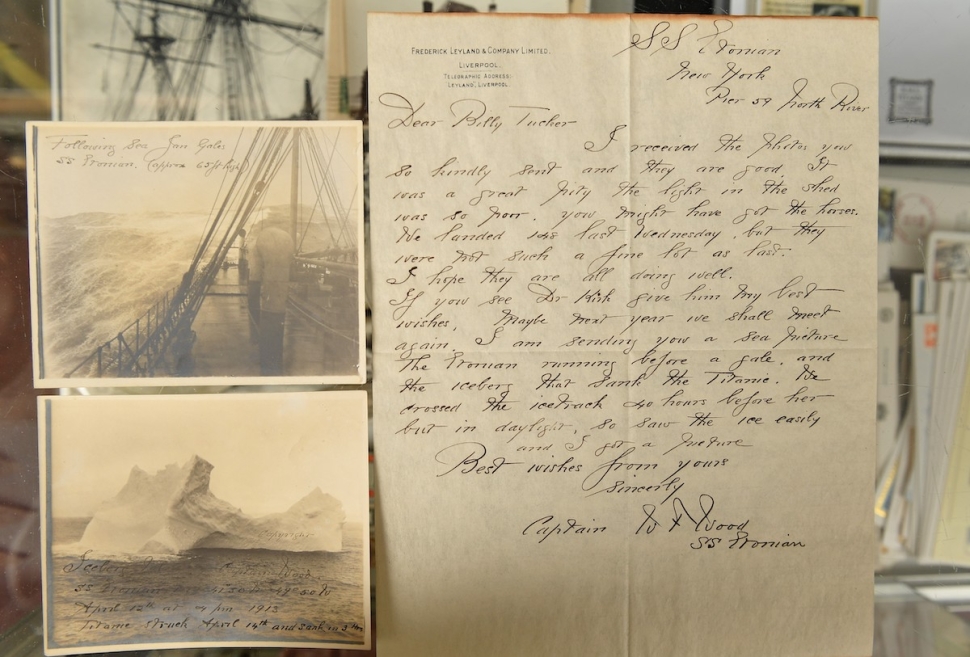 FREDERICK LEYLAND & COMPANY LIMITED.
LIVERPOOL.
TELEGRAPHIC ADDRESS:
LEYLAND, LIVERPOOL.
SS Etonian
New York
Pier 59 North River
Dear Billy Tucker
I received the photos you
so kindly sent and they are good. It
was a great pity the light in the shed
was so poor. you might have got the horses.
We landed 148 last wednesday, but they
were not such a fine lot as last.
I hope they are all doing well.
If you see Dr Kirk give him my best
wishes, Maybe next year we shall meet
again. I am sending you a sea picture
The Etonian running before a gale, and
the iceberg that sank the Titanic. We
crossed the icetrack 40 hours before her
but in daylight, so saw the ice easily
and I got a picture
Best wishes from yours
sincerly
Captain W F Wood
SS Etonian
Following Sea Jan Gales
SS Etonian. (approx 65ft high)
Copyright
Iceberg Captain Wood.
SS Etonian
April 12th at 4 pm 1912
Titanic struck April 14th and sank in 3 hrs